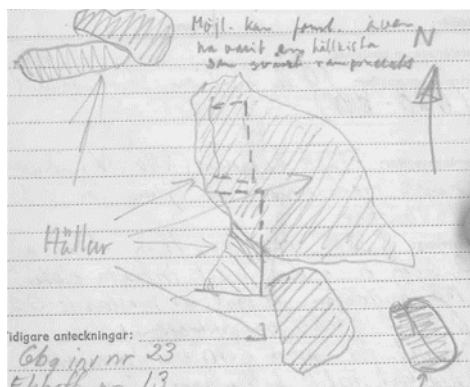 Möjl. kan forml. även
ha varit en hällkista
som svårt ramponerats
N
Hällar
idigare anteckningar:
Gbg inv nr 23
nr 13